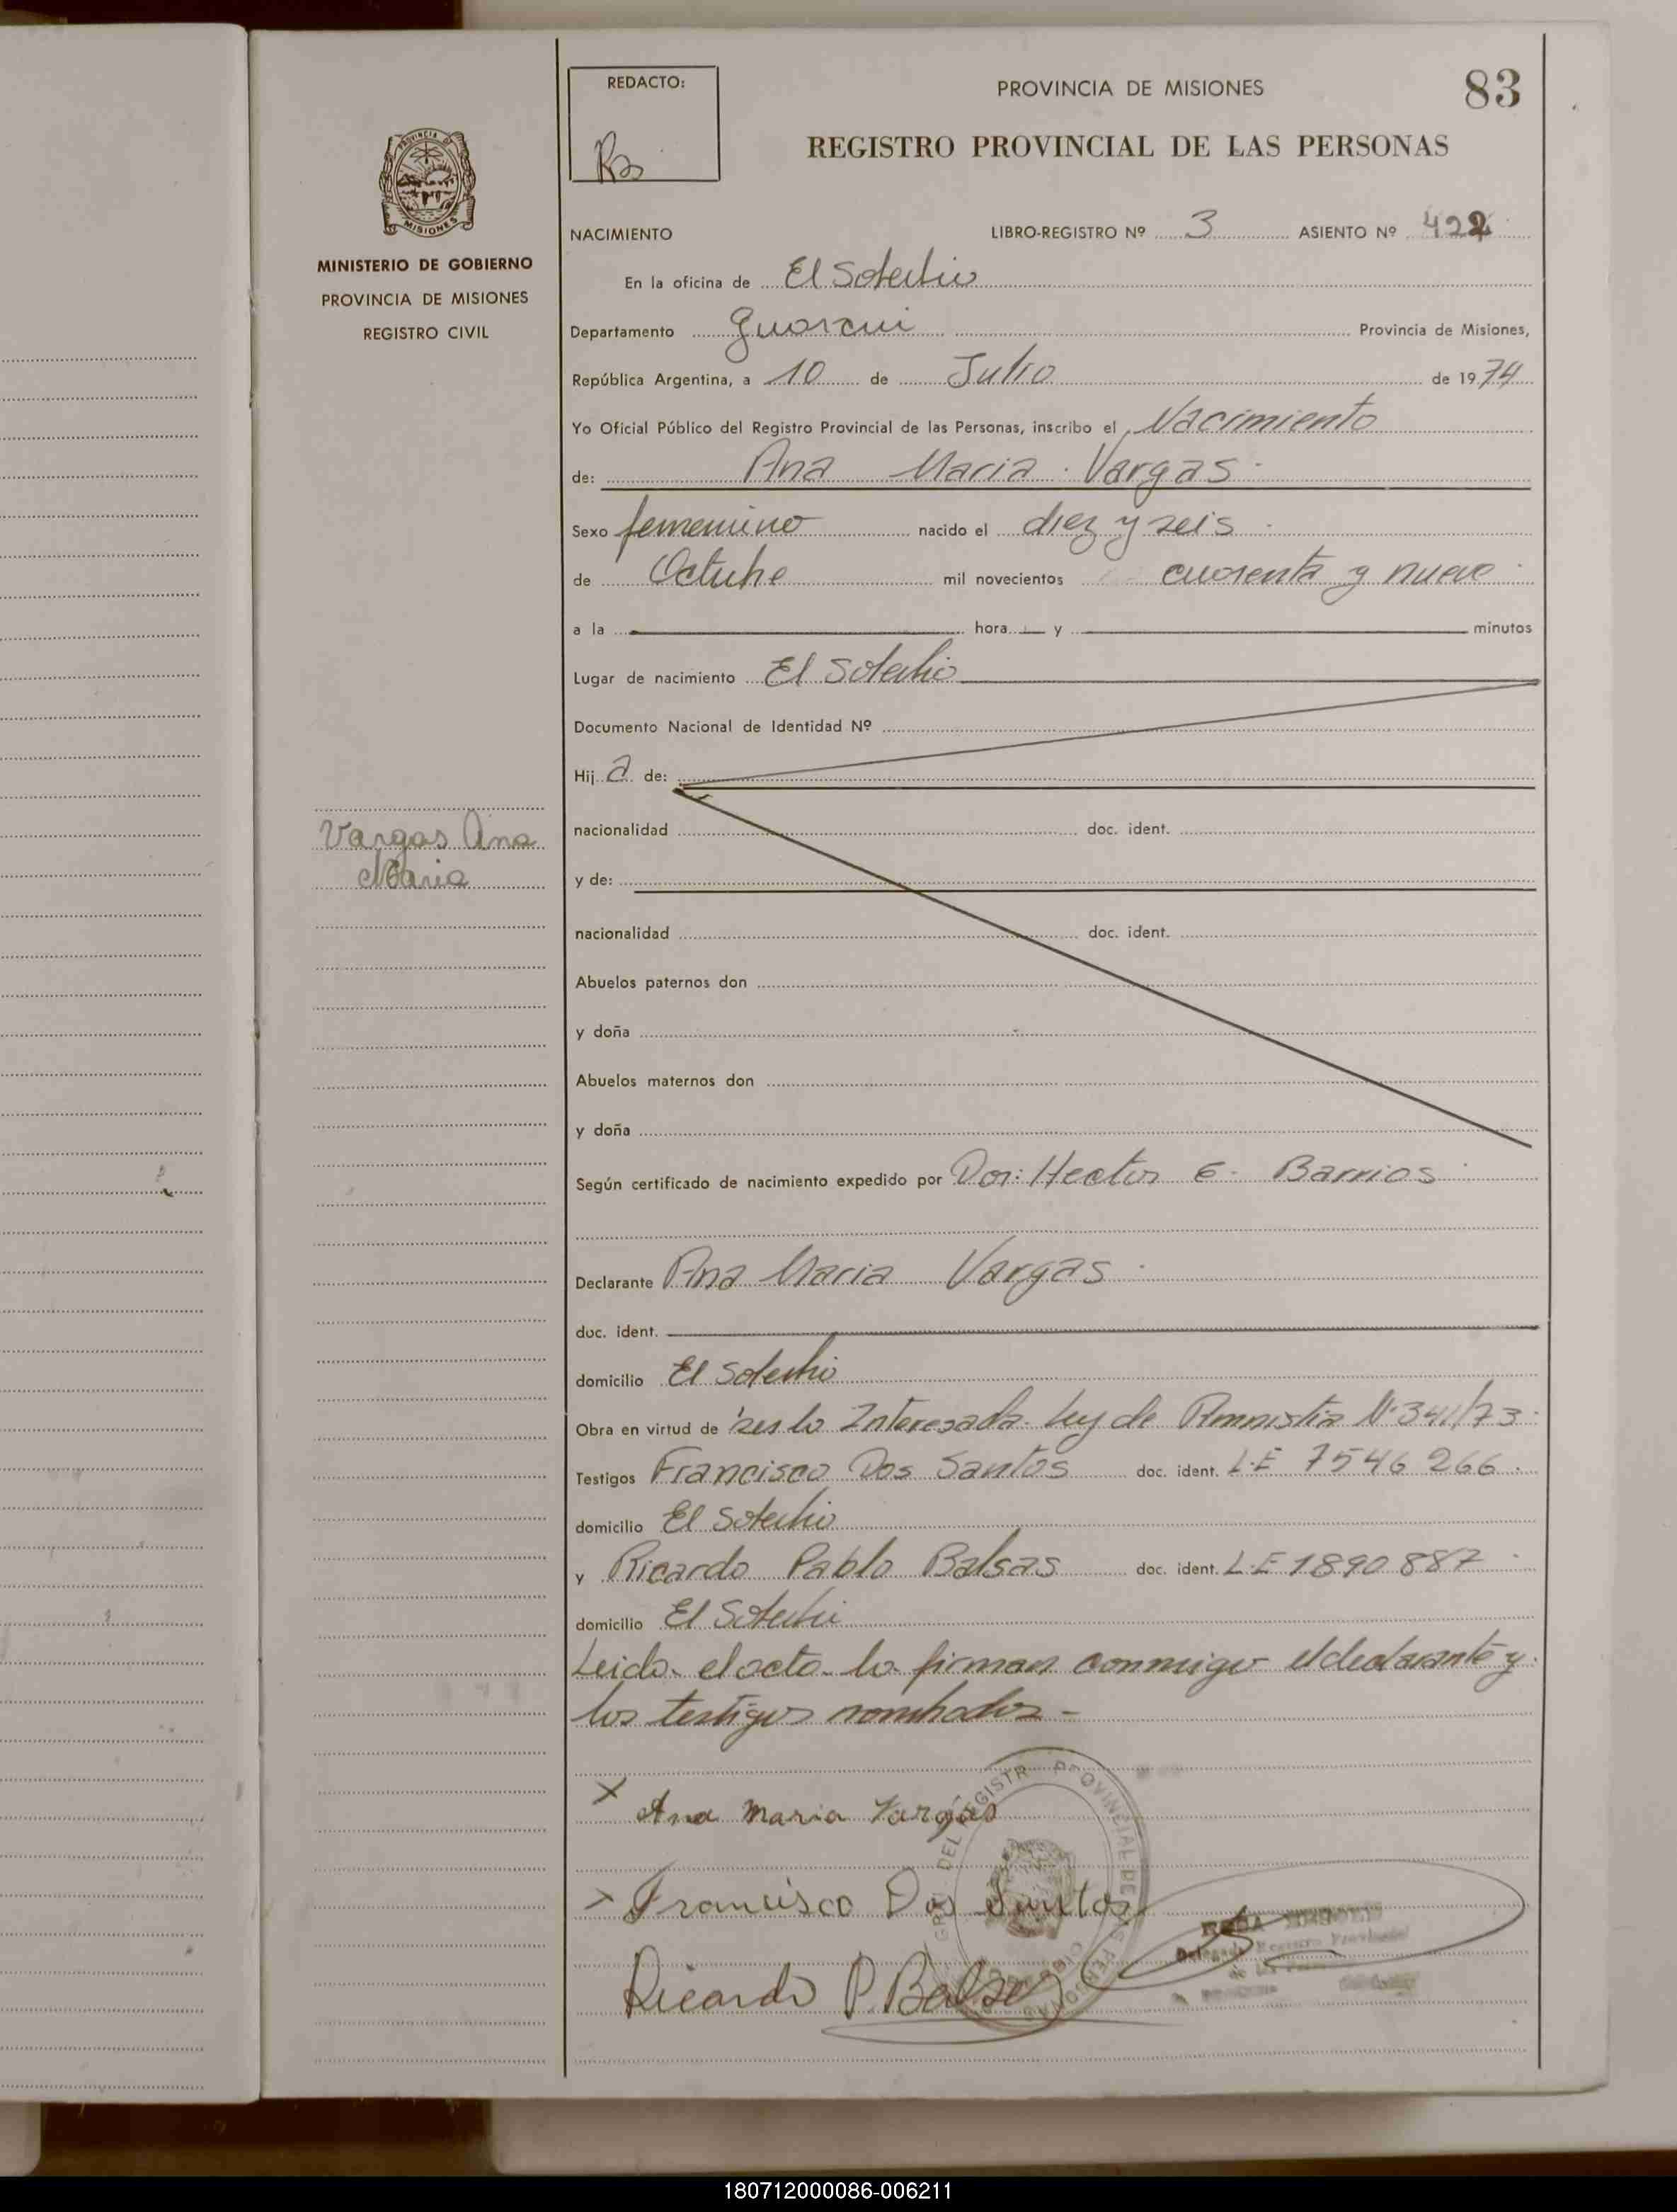 83
REDACTO:
PROVINCIA DE MISIONES
REGISTRO PROVINCIAL DE LAS PERSONAS
PROVINCIA D
MISIONES
MINISTERIO DE GOBIERNO
PROVINCIA DE MISIONES
REGISTRO CIVIL
NACIMIENTO LIBRO-REGISTRO Nº 3 ASIENTO Nº 422
En la oficina de El Soberbio
Departamento Guarani Provincia de Misiones,
República Argentina, a 10 de Julio de 1974
Yo Oficial Público del Registro Provincial de las Personas, inscribo el Nacimiento
de: Ana Maria Vargas
Sexo femenino nacido el diez y seis
de Octubre mil novecientos cuarenta y nueve
a la hora y minutos
Lugar de nacimiento El Soberbio
Documento Nacional de Identidad Nº
Hij a de:
Vargas Ana
Maria
nacionalidad doc. ident.
y de:
nacionalidad doc. ident.
Abuelos paternos don
y doña
Abuelos maternos don
y doña
Según certificado de nacimiento expedido por Dor: Hector E. Barrios
Declarante Ana Maria Vargas
doc. ident.
domicilio El Soberbio
Obra en virtud de ser la Interesada. Ley de Amnistia Nº 341/73
Testigos Francisco Dos Santos doc. ident. L.E 7546266
domicilio El Soberbio
y Ricardo Pablo Balsas doc. ident. L.E 1890887
domicilio El Soberbio
Leido el acta la firman conmigo el declarante y
los testigos nombrados -
X Ana Maria Vargas
Francisco Dos Santos
Ricardo P. Balsas
180712000086-006211